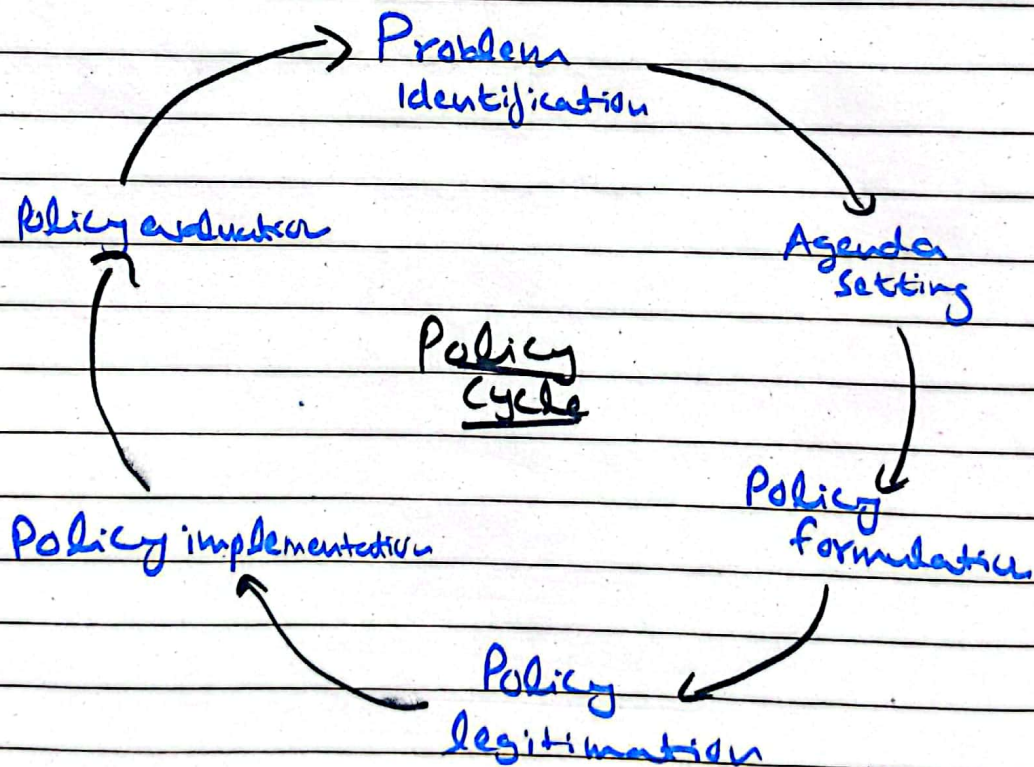 Problem
Identification
Agenda
setting
Policy
formulation
Policy
legitimation
Policy implementation
Policy evaluation
Policy
Cycle